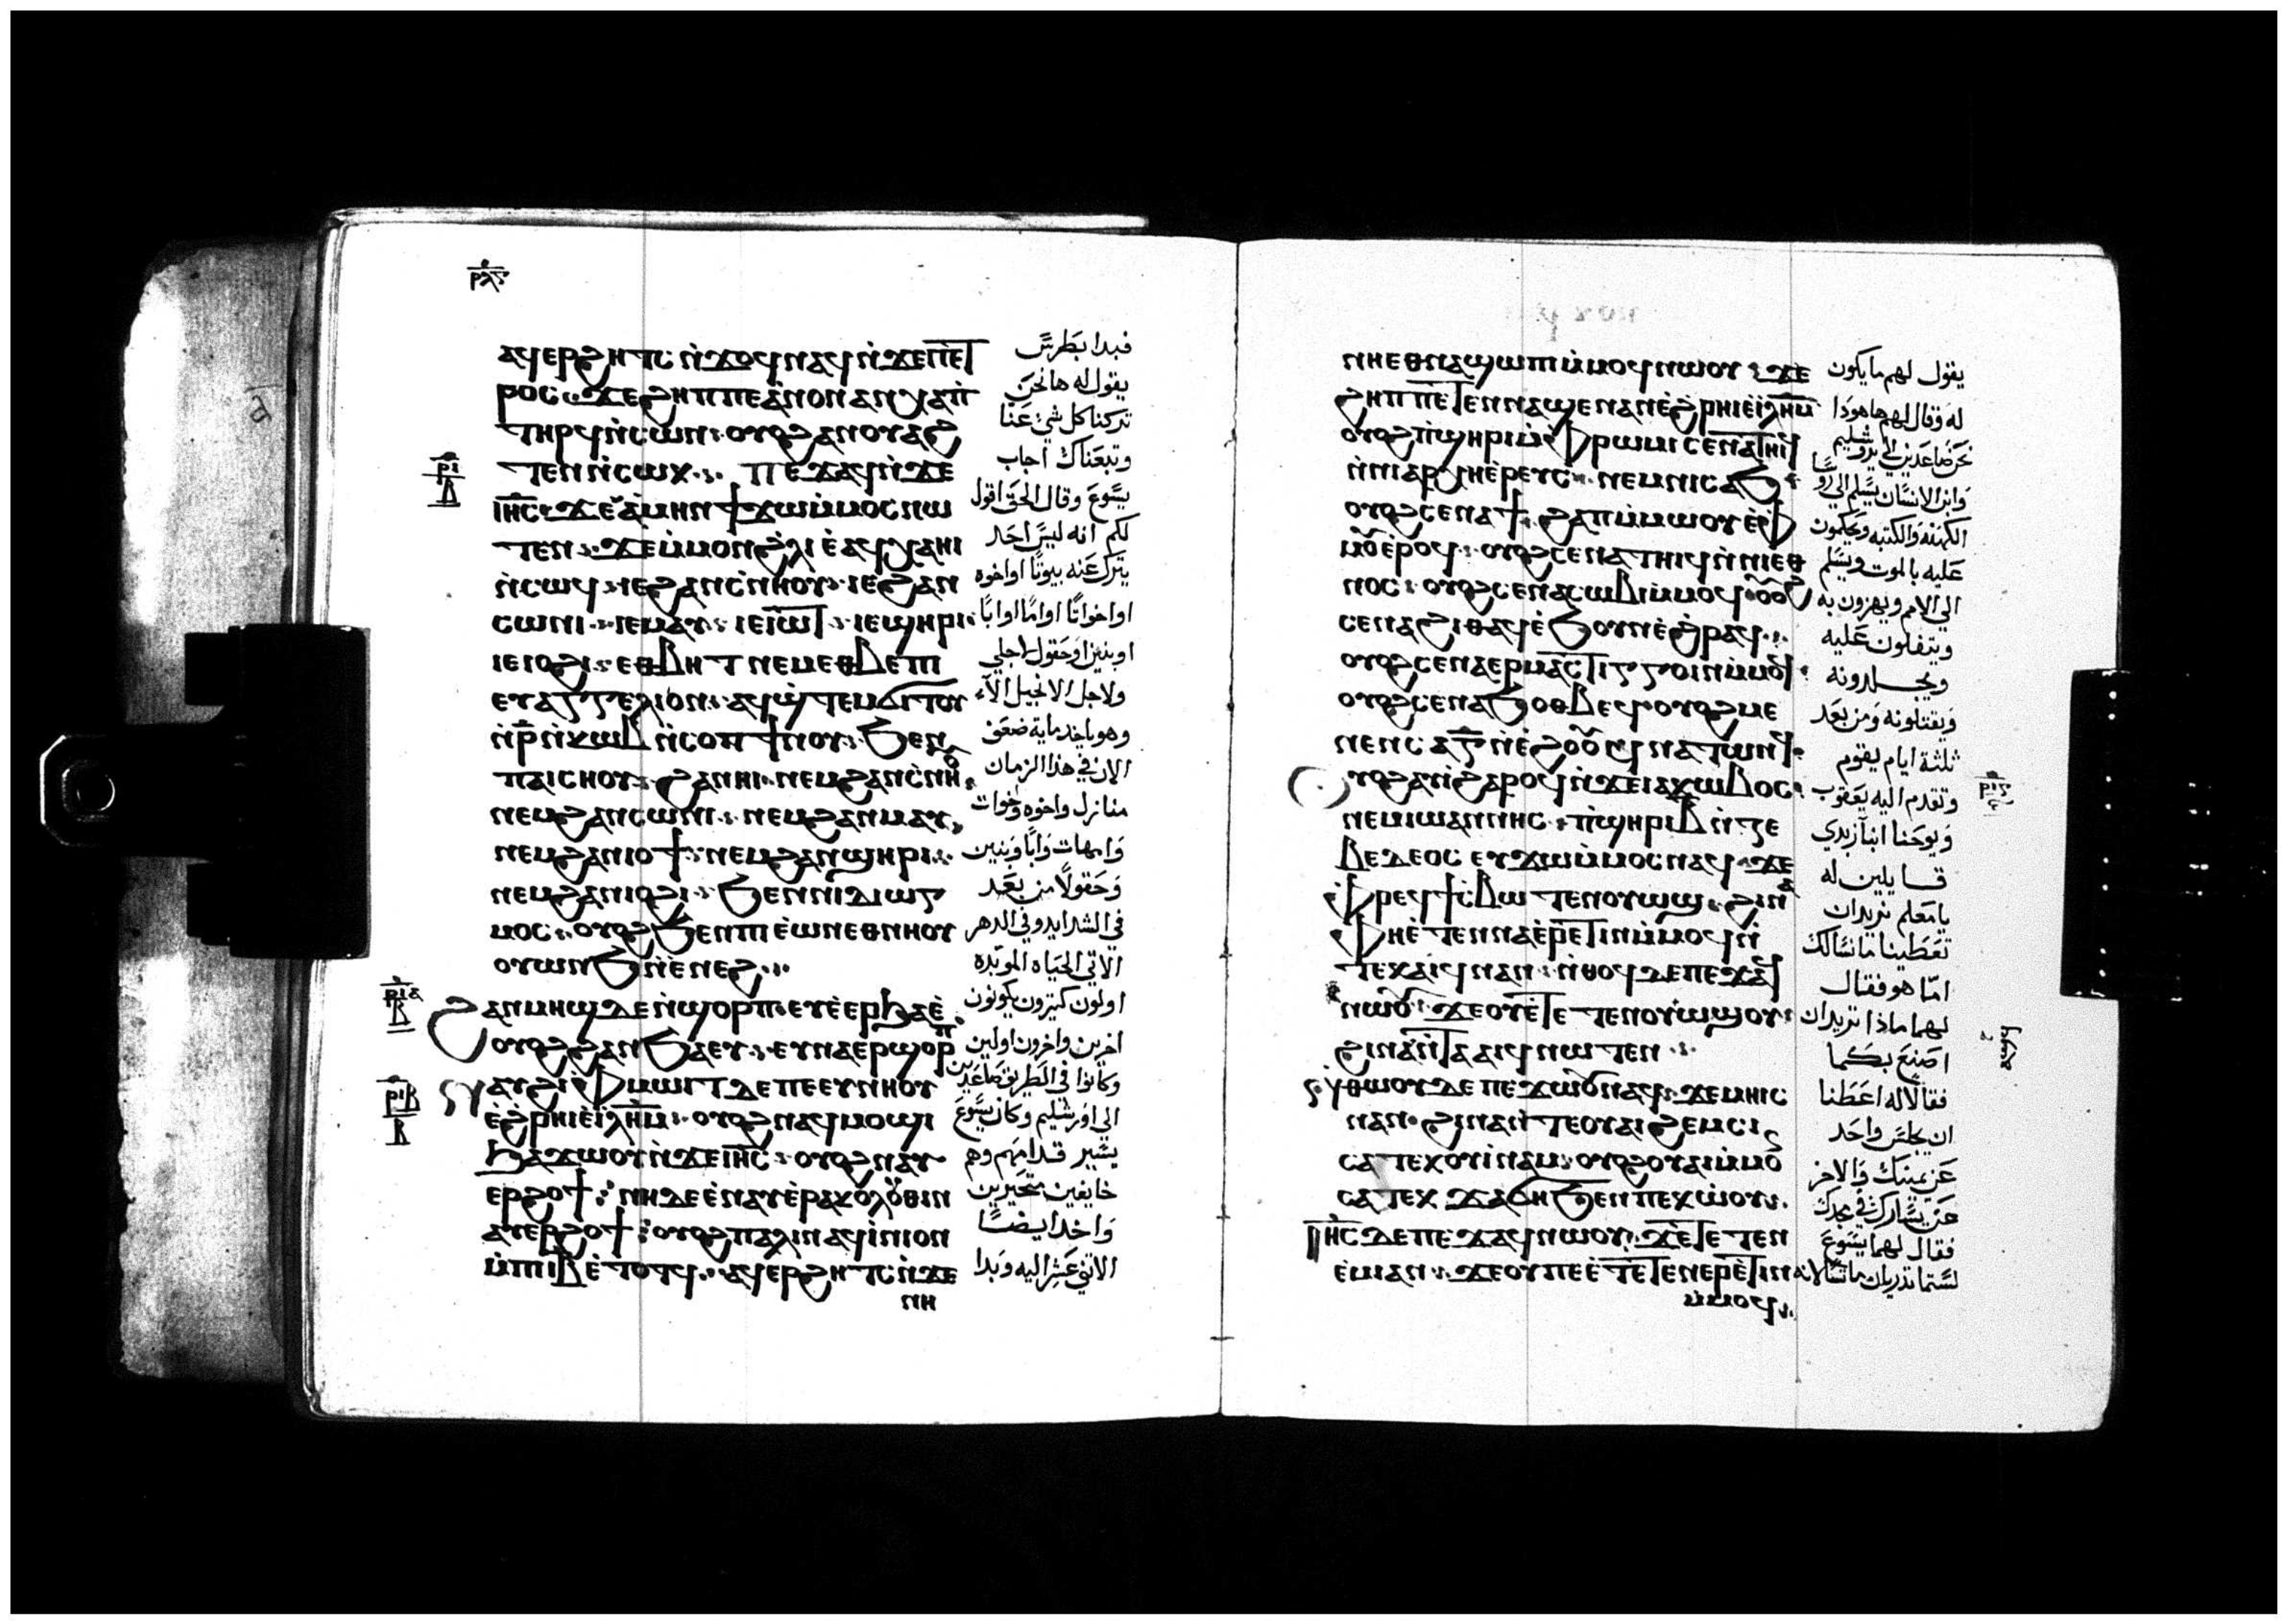 ⲣⲗⲋ
ⲁϥⲉⲣϩⲏⲧⲥ ⲛ̀ϫⲟⲥ ⲛⲁϥ ⲛ̀ϫⲉⲡⲉⲧ
ⲣⲟⲥ ϫⲉϩⲏⲡⲡⲉ ⲁ̀ⲛⲟⲛ ⲁⲛⲭⲁⲡ̀
ⲧⲏⲣϥ ⲛ̀ⲥⲱⲛ ⲟⲩⲟϩ ⲁⲛⲟⲩⲁϩ
ⲧⲉⲛ ⲛ̀ⲥⲱⲕ ⲡⲉϫⲁϥ ⲛ̀ϫⲉ
ⲓⲏ̅ⲥ̅ ϫⲉ ⲁ̀ⲙⲏⲛ ϯϫⲱ ⲙ̀ⲙⲟⲥ ⲛⲱ
ⲧⲉⲛ ϫⲉ ⲙ̀ⲙⲟⲛ ϩⲗⲓ ⲉ̀ⲁϥⲭⲁ ⲏⲓ
ⲛ̀ⲥⲱϥ ⲓⲉ ϩⲁⲛⲥ̀ⲛⲏⲟⲩ ⲓⲉ ϩⲁⲛ
ⲥⲱⲛⲓ ⲓⲉ ⲙⲁⲩ ⲓⲉ ⲓⲱⲧ ⲓⲉ ϣⲏⲣⲓ
ⲓⲉ ⲓⲟϩⲓ ⲉⲑⲃⲏⲧ ⲛⲉⲙ ⲉⲑⲃⲉ ⲡⲓ
ⲉⲩⲁⲅⲅⲉⲗⲓⲟⲛ ⲁϥϣ̀ⲧⲉⲙϭⲓⲧⲟⲩ
ⲛ̀ⲣ̅ ⲛ̀ⲕⲱⲃ ⲛ̀ⲥⲟⲡ ϯⲛⲟⲩ ϧⲉⲛ
ⲡⲁⲓⲥⲏⲟⲩ ϩⲁⲛⲏⲓ ⲛⲉⲙ ϩⲁⲛⲥ̀ⲛⲏⲟⲩ
ⲛⲉⲙ ϩⲁⲛⲥⲱⲛⲓ ⲛⲉⲙ ϩⲁⲛⲙⲁⲩ
ⲛⲉⲙ ϩⲁⲛⲓⲟϯ ⲛⲉⲙ ϩⲁⲛϣⲏⲣⲓ
ⲛⲉⲙ ϩⲁⲛⲓⲟϩⲓ ϧⲉⲛ ⲛⲓⲇⲓⲱⲅ
ⲙⲟⲥ ⲟⲩⲟϩ ϧⲉⲛ ⲡⲓⲉ̀ⲱⲛ ⲉⲑⲛⲏⲟⲩ
ⲟⲩⲱⲛϧ ⲛ̀ⲉⲛⲉϩ
ϩⲁⲛⲙⲏϣ ⲇⲉ ⲛ̀ϣⲟⲣⲡ ⲉⲩⲉ̀ⲉⲣϧⲁⲉ̀
ⲟⲩⲟϩ ϩⲁⲛϧⲁⲉⲩ ⲉⲩⲛⲁⲉⲣϣⲟⲣⲡ
ⲛⲁⲩϩⲓ ⲫⲙⲱⲓⲧ ⲇⲉ ⲡⲉ ⲉⲩⲛⲏⲟⲩ
ⲉ̀ϩ̀ⲣⲏⲓ ⲉ̀ⲓⲗⲏⲙ ⲟⲩⲟϩ ⲛⲁϥⲙⲟϣⲓ
ϧⲁϫⲱⲟⲩ ⲛ̀ϫⲉ ⲓⲏ̅ⲥ̅ ⲟⲩⲟϩ ⲛⲁⲩ
ⲉⲣϩⲟϯ ⲛⲏ ⲇⲉ ⲉ̀ⲛⲁⲩⲉ̀ⲣⲁⲕⲟⲗⲟⲩⲑⲓⲛ
ⲁⲩⲉⲣϩⲟϯ ⲟⲩⲟϩ ⲡⲁⲗⲓⲛ ⲁϥⲓ̀ⲛⲓ ⲟⲛ
ⲙ̀ⲡⲓⲓⲃ ⲉ̀ⲧⲟⲧϥ ⲁϥⲉⲣϩⲏⲧⲥ ⲛ̀ϫⲉ
ⲛⲏ
ⲣⲓ
ⲃ
ⲣⲓⲁ
ⲃ
ⲣⲓⲃ
ⲃ
فبدا بطرس
يقول له ها نحن
تركنا كل شي عنا
وتبعناك اجاب
يسوع وقال الحق اقول
لكم انه ليس احد
يترك عنه بيوتا او اخوه
او اخواتا او اما او ابا
او بنين او حقول لاجلي
ولاجل الانجيل الا
وهو ياخذ مايه ضعف
الان في هذا الزمان
منازل واخوه واخوات
وامهات وابا وبنين
وحقولا من بعد
في الشدايد وفي الدهر
الاتي الحياه الموبده
اولون كثيرون يكونون
اخرين واخرون اولين
وكانوا في الطريق صاعدين
الى اورشليم وكان يسوع
يسير قدامهم وهم
خايفين متحيرين
واخذ ايضا
الاثني عشر اليه وبدا
ⲛⲏ ⲉⲑⲛⲁϣⲱⲡⲓ ⲙ̀ⲙⲟϥ ⲛⲱⲟⲩ ϫⲉ
ϩⲏⲡⲡⲉ ⲧⲉⲛⲛⲁϣⲉ ⲛⲁⲛ ⲉ̀ϩⲣⲏⲓ ⲉ̀ⲓⲗⲏⲙ
ⲟⲩⲟϩ ⲡ̀ϣⲏⲣⲓ ⲙ̀ⲫⲣⲱⲙⲓ ⲥⲉⲛⲁⲧⲏⲓϥ
ⲛ̀ⲛⲓⲁⲣⲭⲏⲉ̀ⲣⲉⲩⲥ ⲛⲉⲙ ⲛⲓⲥⲁϧ
ⲟⲩⲟϩ ⲥⲉⲛⲁϯ ϩⲁⲡ ⲙ̀ⲙⲱⲟⲩ ⲉ̀ⲫ
ⲙⲟⲩ ⲉ̀ⲣⲟϥ ⲟⲩⲟϩ ⲥⲉⲛⲁⲧⲏⲓϥ ⲛ̀ⲛⲓⲉⲑ
ⲛⲟⲥ ⲟⲩⲟϩ ⲥⲉⲛⲁⲥⲱⲃⲓ ⲙ̀ⲙⲟϥ ⲟⲩⲟϩ
ⲥⲉⲛⲁϩⲓⲑⲁϥ ⲉ̀ϧⲟⲩⲛ ⲉ̀ϩ̀ⲣⲁϥ
ⲟⲩⲟϩ ⲥⲉⲛⲁⲉⲣⲙⲁⲥⲧⲓⲅⲅⲟⲓⲛ ⲙ̀ⲙⲟϥ
ⲟⲩⲟϩ ⲥⲉⲛⲁϧⲟⲑⲃⲉϥ ⲟⲩⲟϩ ⲙⲉ
ⲛⲉⲛⲥⲁ ⲅ̅ ⲛ̀ⲉ̀ϩⲟⲟⲩ ϥⲛⲁⲧⲱⲛϥ
ⲟⲩⲟϩ ⲁⲩⲓ̀ ϩⲁⲣⲟϥ ⲛ̀ϫⲉ ⲓⲁⲕⲱⲃⲟⲥ
ⲛⲉⲙ ⲓⲱⲁⲛⲛⲏⲥ ⲡ̀ϣⲏⲣⲓ ⲃ ⲛ̀ⲍⲉ
ⲃⲉⲇⲉⲟⲥ ⲉⲩϫⲱ ⲙ̀ⲙⲟⲥ ⲛⲁϥ ϫⲉ
ⲫⲣⲉϥϯⲥ̀ⲃⲱ ⲧⲉⲛⲟⲩⲱϣ ϩⲓⲛⲁ
ⲫⲏ ⲉ̀ⲧⲉⲛⲛⲁⲉ̀ⲣⲉⲧⲓⲛ ⲙ̀ⲙⲟϥ ⲛ̀
ⲧⲉⲕⲁⲓϥ ⲛⲁⲛ ⲛ̀ⲑⲟϥ ⲇⲉ ⲡⲉϫⲁϥ
ⲛⲱⲟⲩ ϫⲉ ⲟⲩ ⲉ̀ⲧⲉⲧⲉⲛⲟⲩⲱϣ ⲟⲩ
ϩⲓⲛⲁ ⲛ̀ⲧⲁⲁⲓϥ ⲛⲱⲧⲉⲛ
ⲛ̀ⲑⲱⲟⲩ ⲇⲉ ⲡⲉϫⲱⲟⲩ ⲛⲁϥ ϫⲉ ⲙⲏⲓⲥ
ⲛⲁⲛ ϩⲓⲛⲁ ⲛ̀ⲧⲉ ⲟⲩⲁⲓ ϩⲉⲙⲥⲓ
ⲥⲁ ⲧⲉⲕⲟⲩⲓ̀ⲛⲁⲙ ⲟⲩⲟϩ ⲟⲩⲁⲓ ⲙ̀ⲙⲟⲛ
ⲥⲁ ⲧⲉⲕϫⲁϭⲏ ϧⲉⲛ ⲡⲉⲕⲱ̀ⲟⲩ
ⲓⲏ̅ⲥ̅ ⲇⲉ ⲡⲉϫⲁϥ ⲛⲱⲟⲩ ϫⲉ ⲧⲉⲧⲉⲛ
ⲉ̀ⲙⲓ ⲁⲛ ϫⲉ ⲟⲩⲡⲉ ⲉ̀ⲧⲉⲧⲉⲛⲉⲣⲉ̀ⲧⲓⲛ
ⲙ̀ⲙⲟϥ
يقول لهم ما يكون
له وقال لهم ها هوذا
نحن صاعدين الى يروشليم
وابن الانسان يسلم الى روسا
الكهنة والكتبه ويحكمون
عليه بالموت ويسلم
الى الامم ويهزون به
ويتفلون عليه
ويجلدونه
ويقتلونه ومن بعد
ثلثة ايام يقوم
وتقدم اليه يعقوب
ويوحنا ابنا زبدي
قايلين له
يا معلم نريد ان
تعطينا ما نسالك
اما هو فقال
لهما ماذا تريدان
اصنع بكما
فقالا له اعطنا
ان يجلس واحد
عن يمينك والاخر
عن يسارك في مجدك
فقال لهما يسوع
لستما تدريان ما تسالا